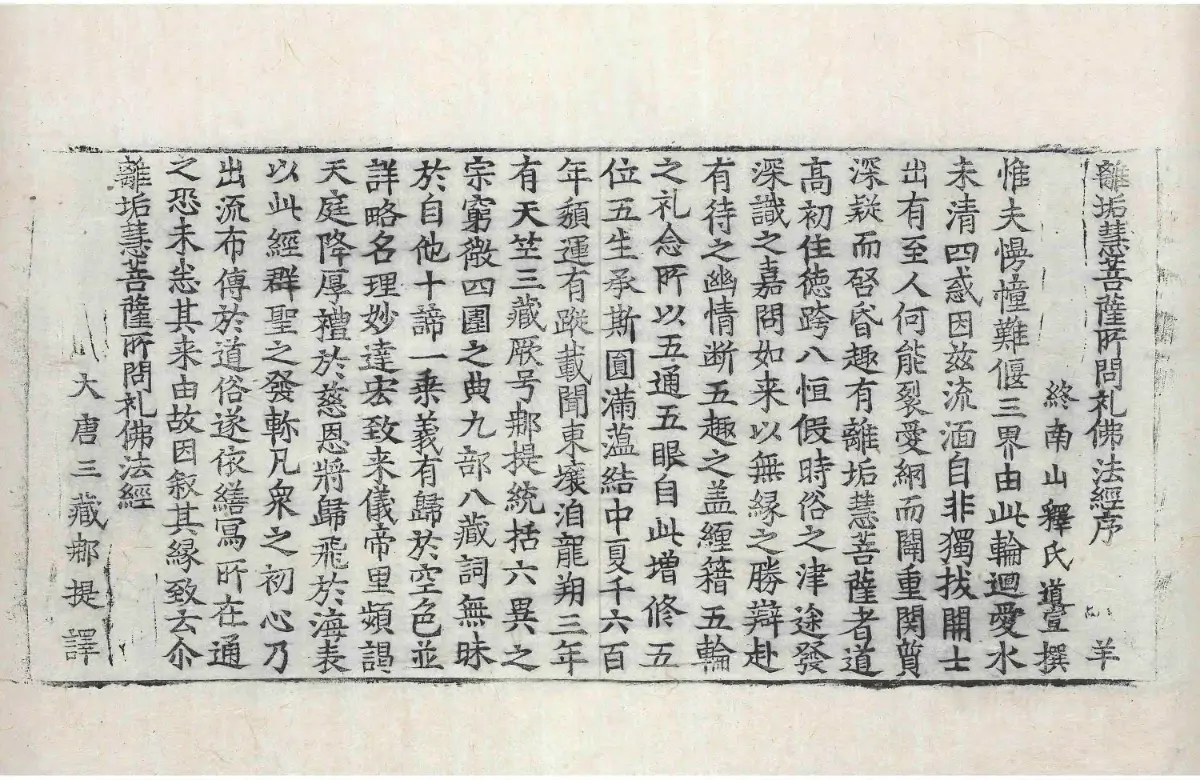 離垢慧菩薩所問礼佛法經序 羊
終南山釋氏道宣撰
惟夫慢幢難偃三界由此輪迴愛水
未清四惑因茲流湎自非獨拔開士
出有至人何能裂愛網而闢重関質
深疑而啓昏趣有離垢慧菩薩者道
高初住德跨八恒假時俗之津途發
深識之嘉問如来以無縁之勝辯赴
有待之幽情断五趣之盖纏籍五輪
之礼念所以五通五眼自此増修五
位五生承斯圓滿薀結中夏千六百
年頽運有蹤載聞東壤洎龍朔三年
有天竺三藏厥号那提統括六異之
宗窮微四圍之典九部八藏詞無昧
於自他十諦一乗義有歸於空色並
詳略名理妙達宏致来儀帝里頻謁
天庭降厚禮於慈恩將歸飛於海表
以此經群聖之發軫凡衆之初心乃
出流布傳於道俗遂依繕寫所在通
之恐未悉其来由故因叙其縁致云尒
離垢慧菩薩所問礼佛法經
大唐三藏那提譯